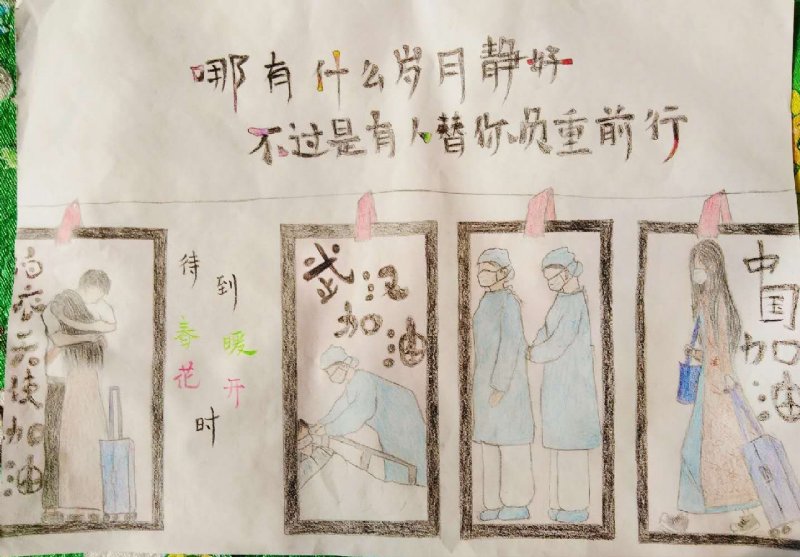 哪有什么岁月静好
不过是有人替你负重前行
白衣天使加油
待到
春暖
花开
时
武汉
加油
中国加油